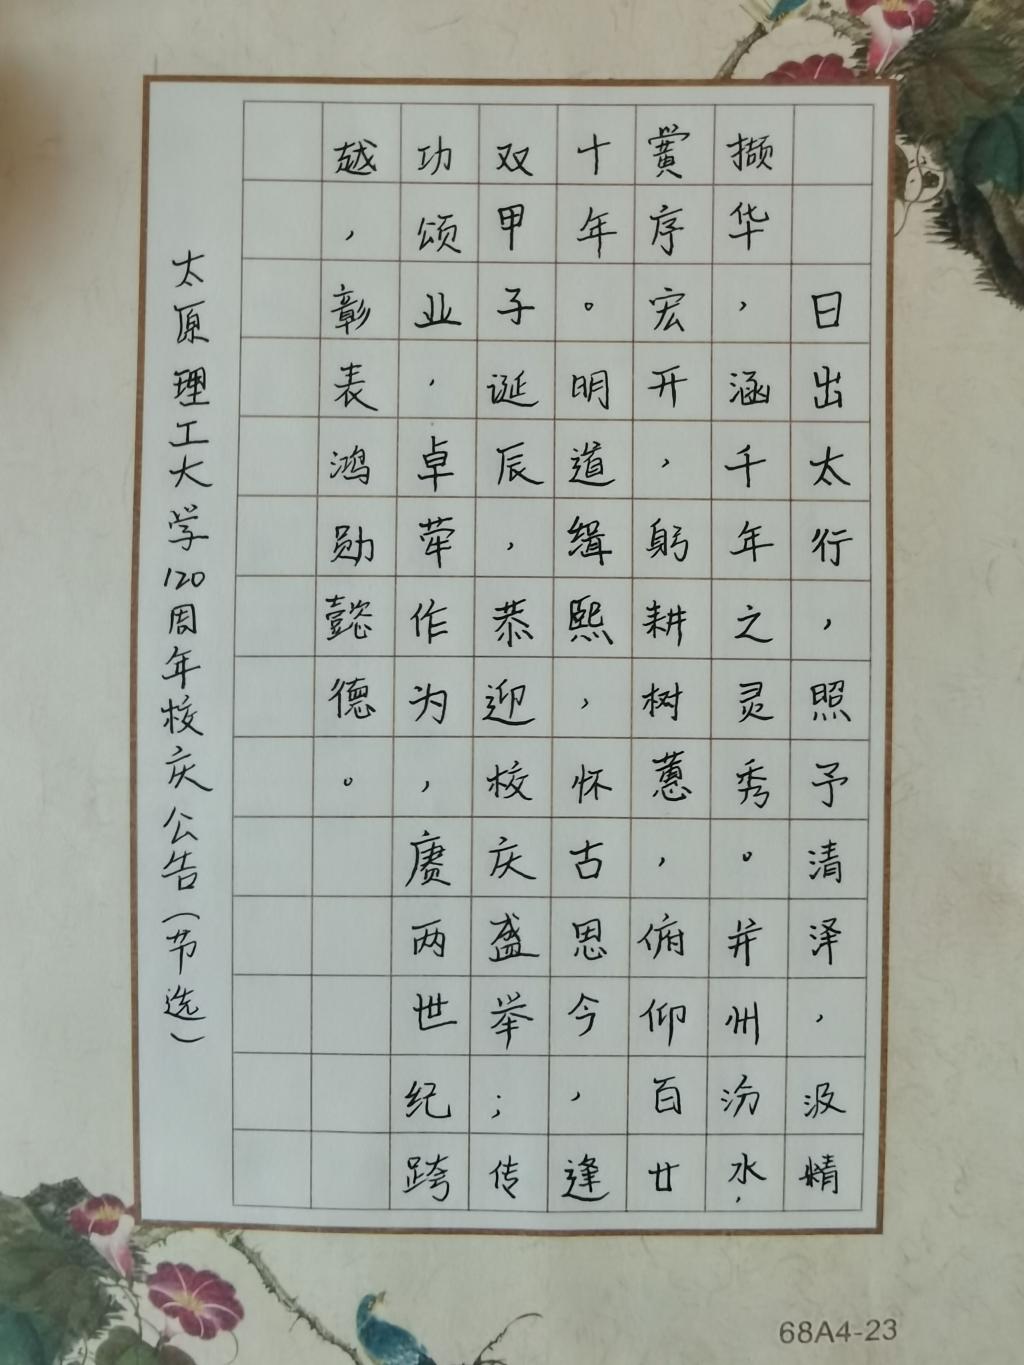 日出太行，照予清泽，汲精
撷华，涵千年之灵秀。并州汾水，
黉序宏开，躬耕树蕙，俯仰百廿
十年。明道缉熙，怀古思今，逢
双甲子诞辰，恭迎校庆盛举；传
功颂业，卓荦作为，赓两世纪跨
越，彰表鸿勋懿德。
太原理工大学120周年校庆公告(节选)
68A4-23